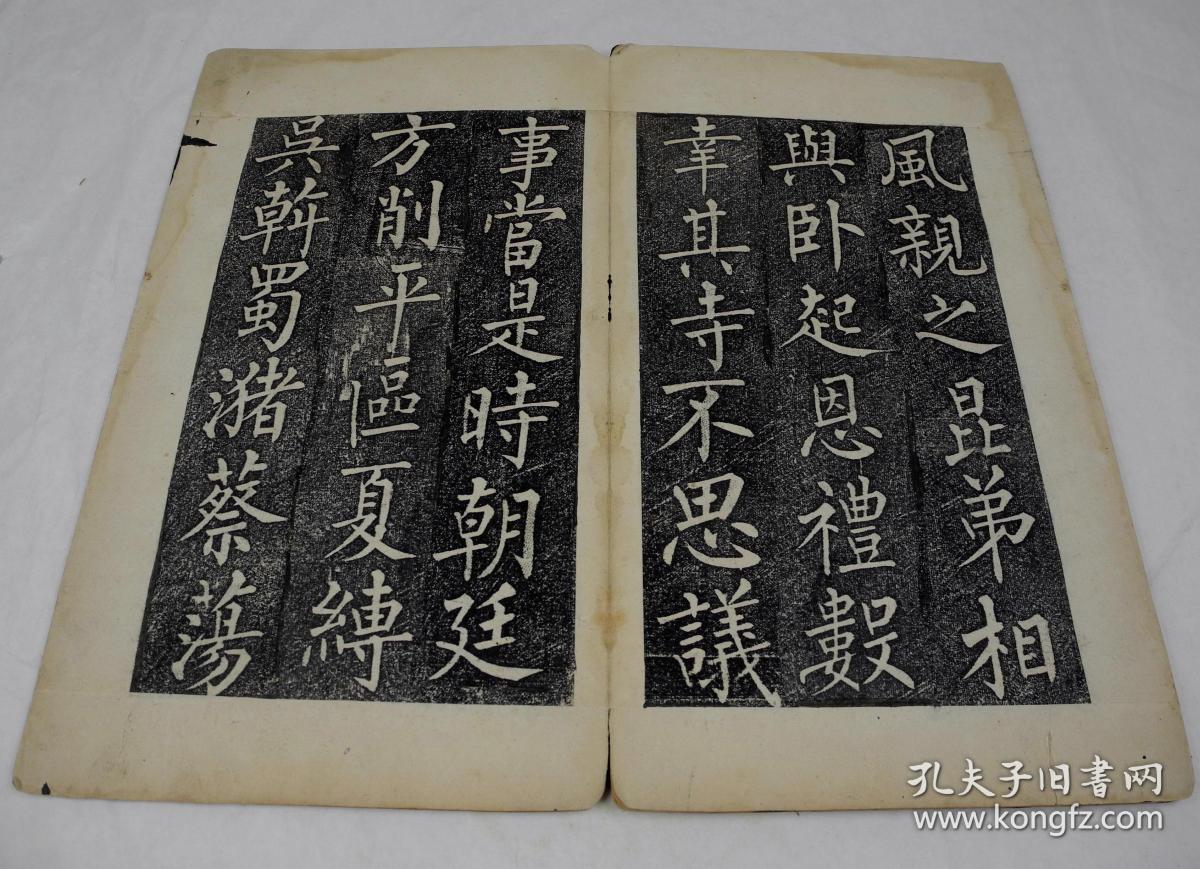 風親之昆弟相
與卧起恩禮數
幸其寺不思議
事當是時朝廷
方削平區夏縛
吳斡蜀瀦蔡蕩
孔夫子旧书网
www.kongfz.com